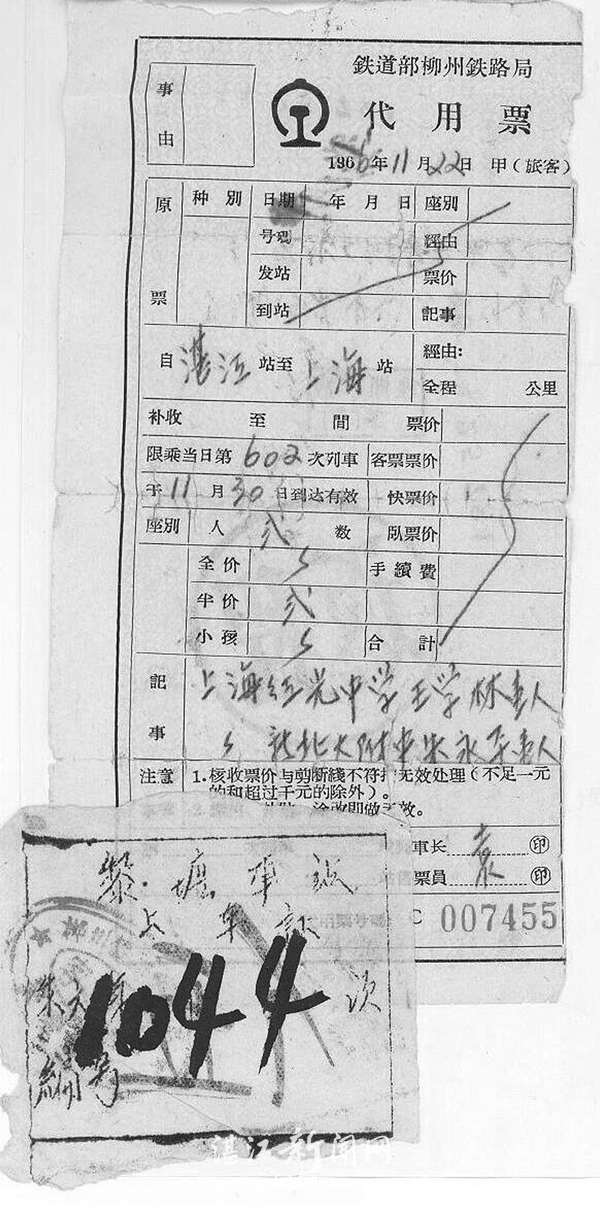 鉄道部柳州鉄路局
代用票
1966年11月22日 甲(旅客)
事由
原票
种别 日期 年月日 座別
号碼 経由
发站 票价
到站 記事
自湛江站至上海站 経由:
全程 公里
补收 至 間 票价
限乘当日第602次列車 客票票价
于11月30日到达有效 快票价
座別 人弍数 臥票价
全价 手續費
半价 弍
小孩 合計
記事
上海红光中学王学林
大附中朱永
注意 1.核收票价与剪断綫不符按无效处理(不足一元
的和超过千元的除外)。
涂改即做无效。
車长 袁 印
票員 印
C 007455
黎塘車
上車証
1044次
編号
湛江新闻网